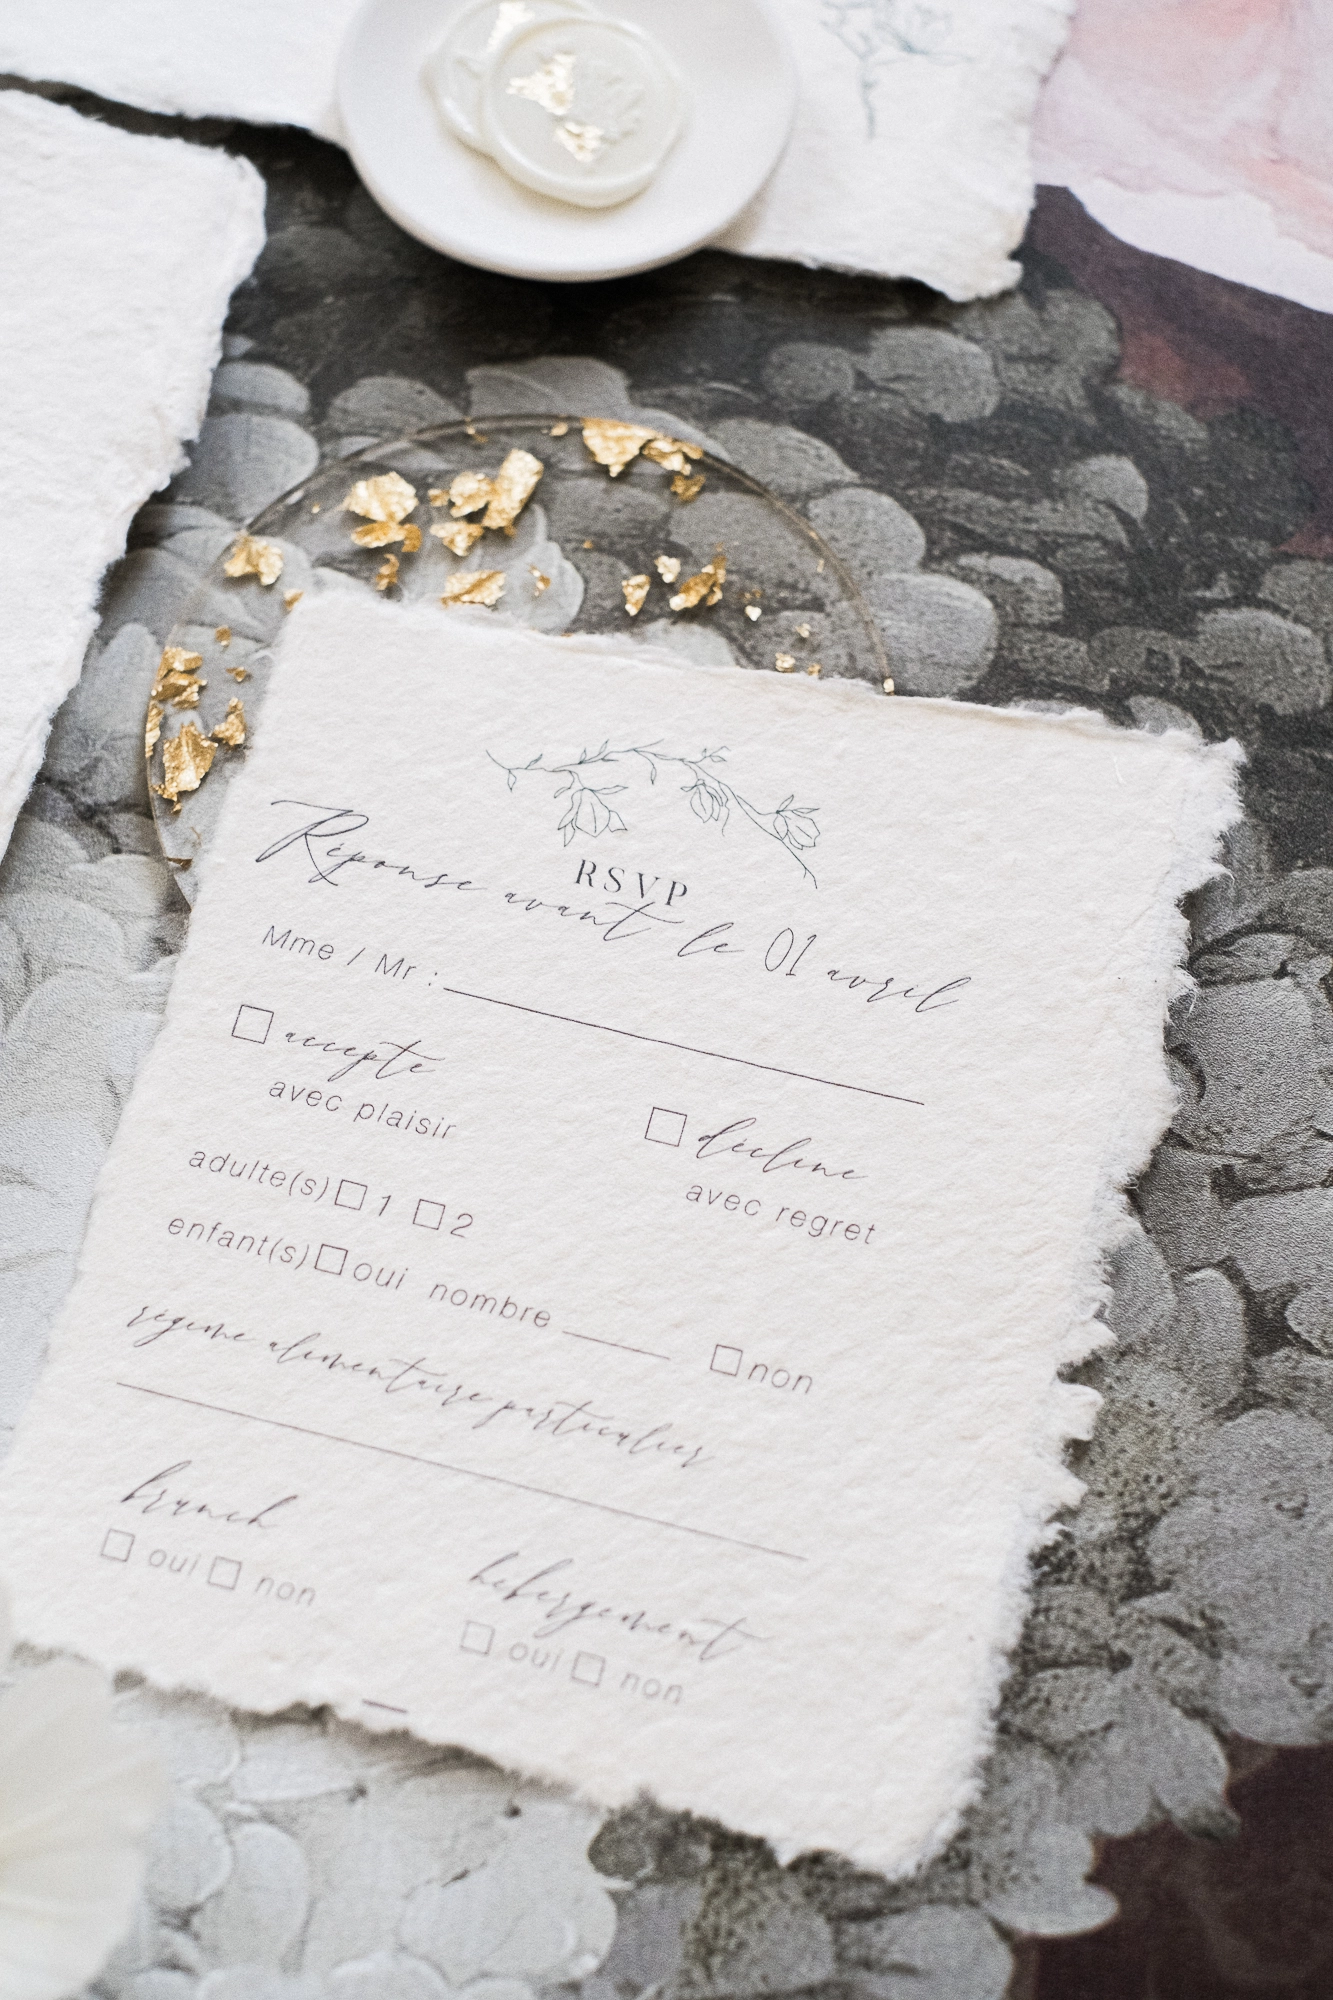 RSVP
Réponse avant le 01 avril
Mme / Mr :
☐ accepte
avec plaisir
☐ décline
avec regret
adulte(s) ☐ 1 ☐ 2
enfant(s) ☐ oui nombre ____ ☐ non
régime alimentaire particulier
brunch
☐ oui ☐ non
hébergement
☐ oui ☐ non